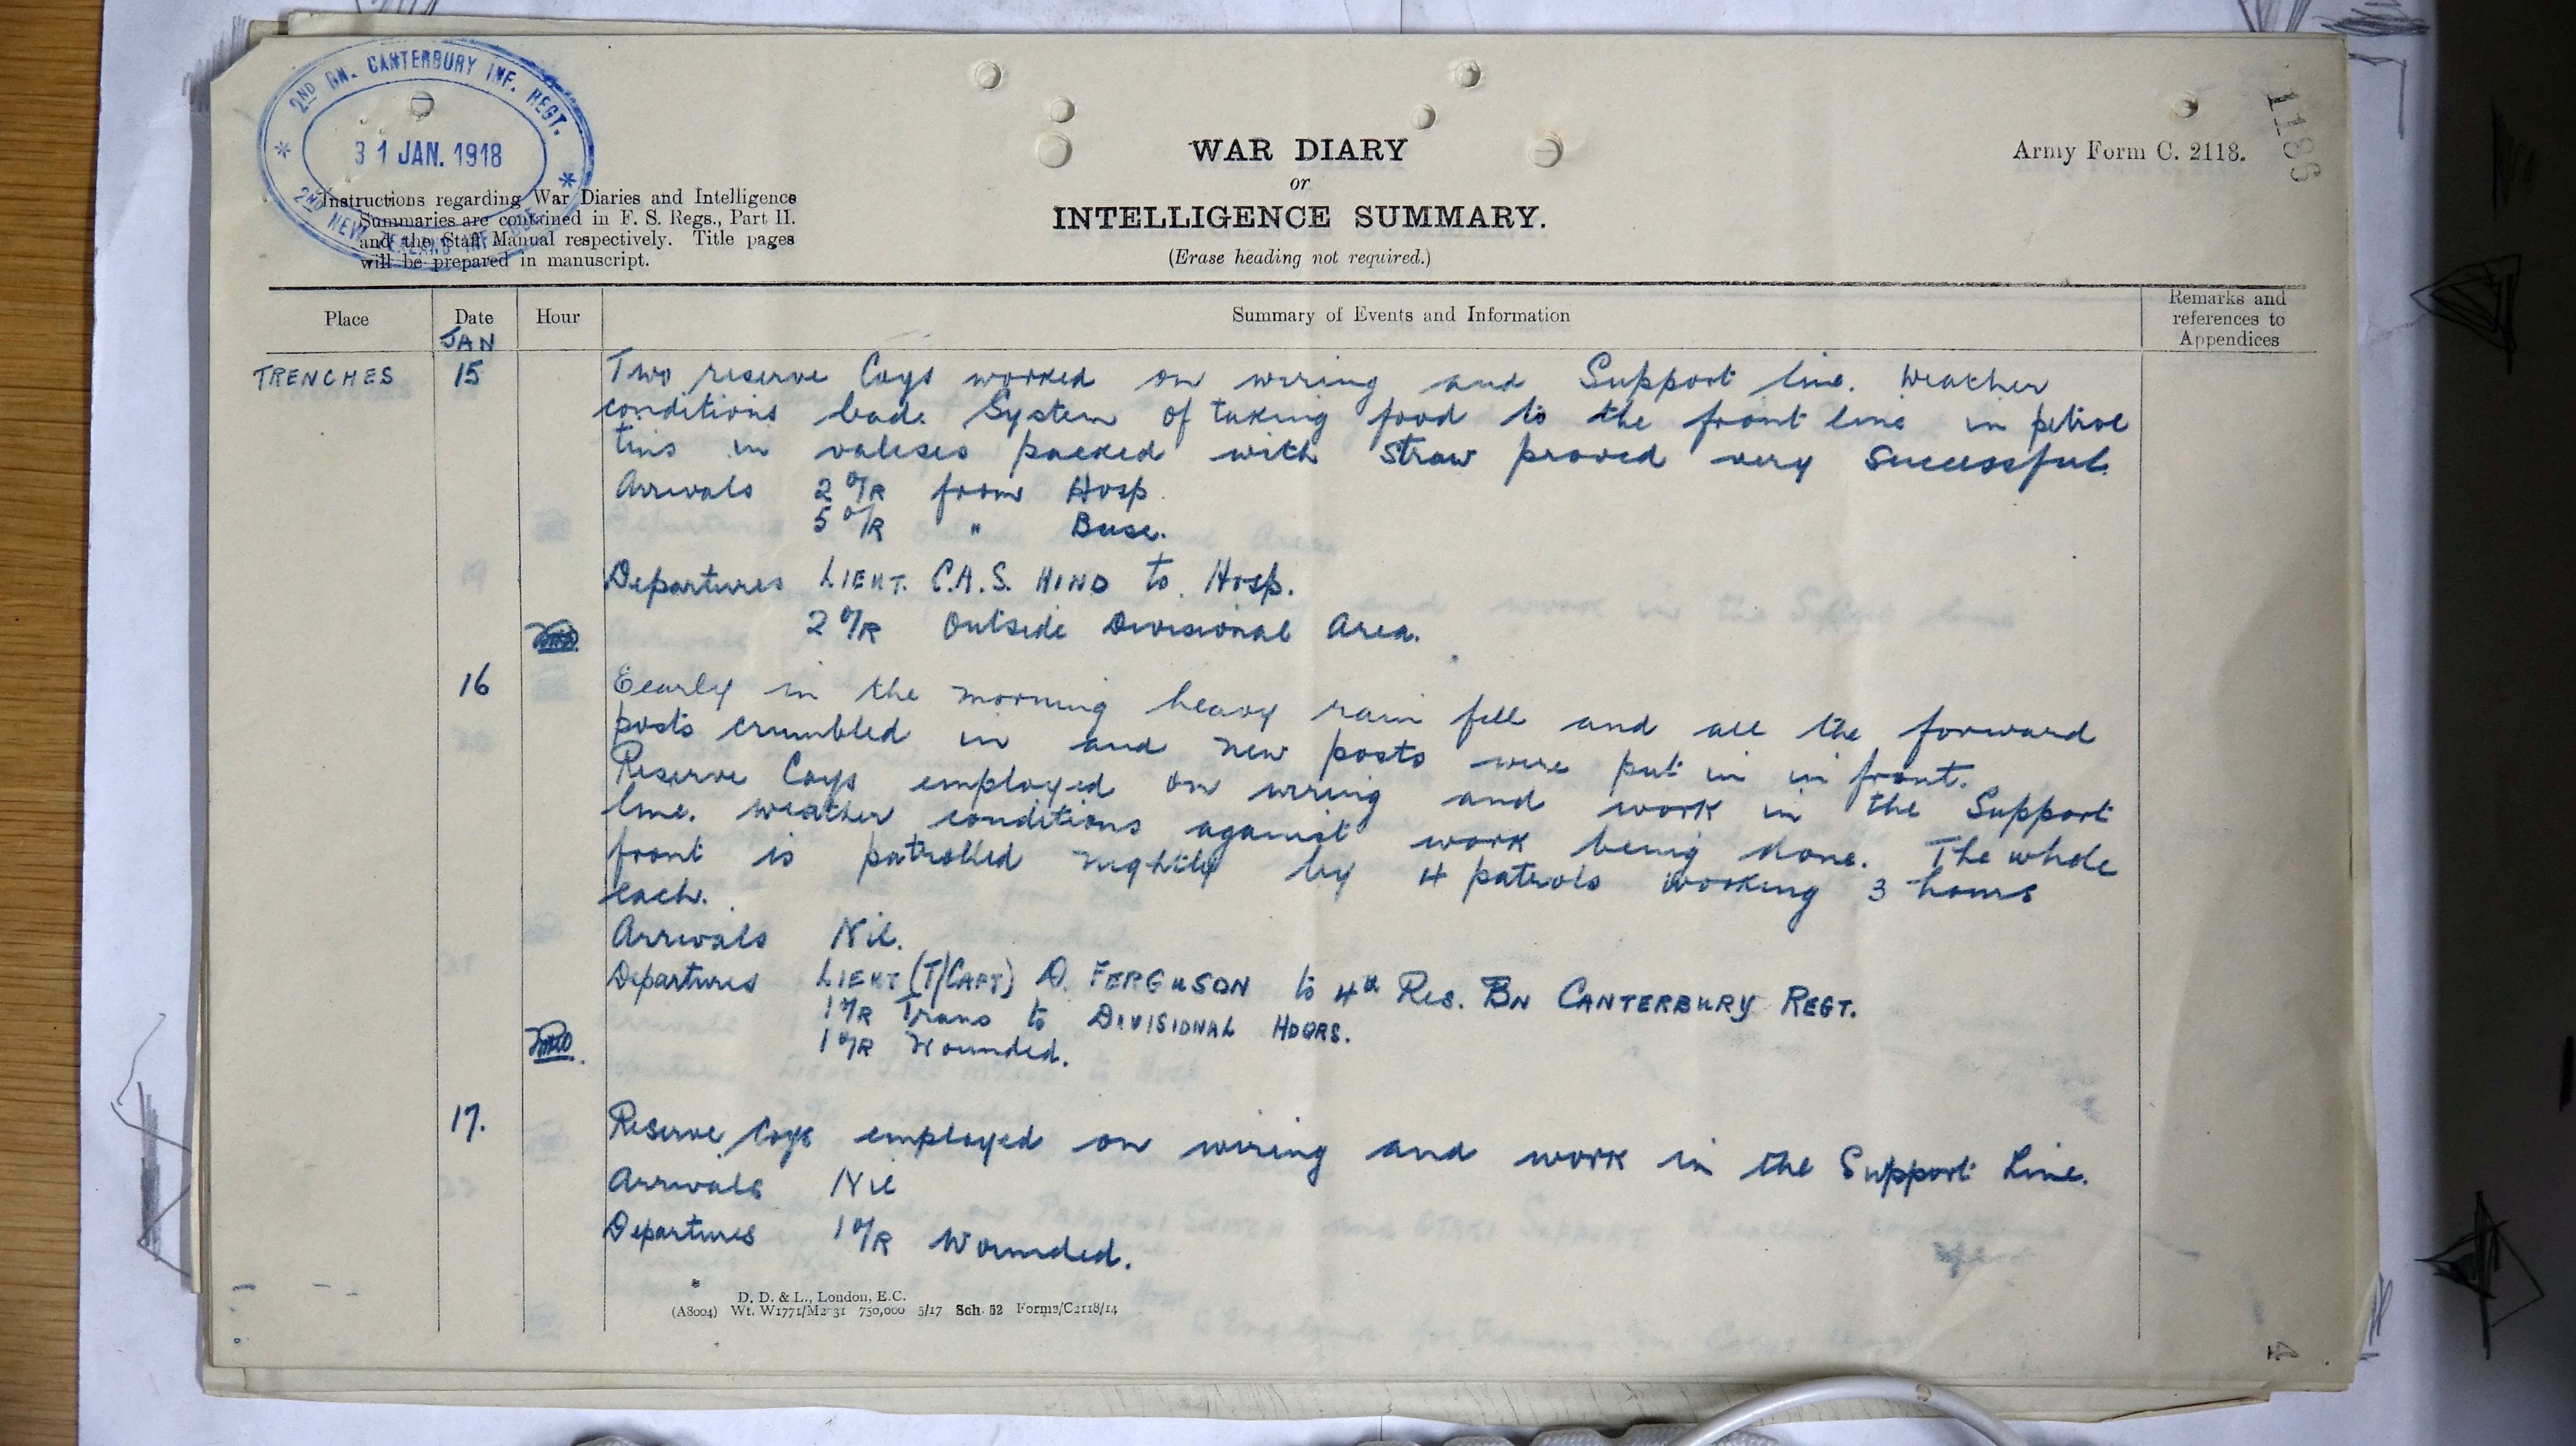 2ND BN. CANTERBURY INF. REGT.
31 JAN. 1918
2ND NEW ZEALAND INF.
Instructions regarding War Diaries and Intelligence
Summaries are contained in F. S. Regs., Part II.
and the Staff Manual respectively. Title pages
will be prepared in manuscript.
WAR DIARY
or
INTELLIGENCE SUMMARY.
(Erase heading not required.)
Army Form C. 2118.
1186
Place
Date
Hour
Summary of Events and Information
Remarks and
references to
Appendices
JAN
TRENCHES 15 Two reserve Coys worked on wiring and Support line. Weather
conditions bad. System of taking food to the front line in petrol
tins in valises packed with straw proved very successful.
Arrivals 2 O/R from Hosp.
5 O/R " Base.
Departures LIEUT. C.A.S. HIND to Hosp.
2 O/R Outside Divisional Area.
16 Eearly in the morning heavy rain fell and all the forward
posts crumbled in and new posts were put in in front.
Reserve Coys employed on wiring and work in the Support
line. Weather conditions against work being done. The whole
front is patrolled nightly by 4 patrols working 3 hours
each.
Arrivals Nil.
Departures LIEUT (T/CAPT) D. FERGUSON to 4th Res. BN CANTERBURY REGT.
1 O/R Trans to DIVISIONAL HDQRS.
1 O/R Wounded.
17. Reserve Coys employed on wiring and work in the Support Line.
Arrivals Nil
Departures 1 O/R Wounded.
D. D. & L., London, E.C.
(A8004) Wt. W1771/M2 31 750,000 5/17 Sch. 52 Forms/C2118/14
4